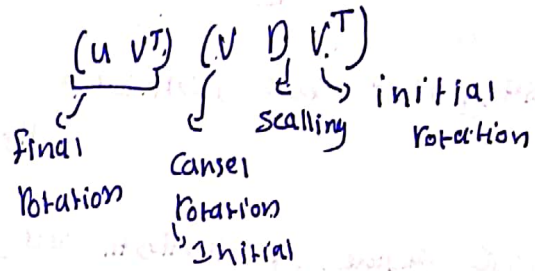 (U V^T) (V D V^T)
final rotation
cansel rotation
Initial
scalling
initial rotation